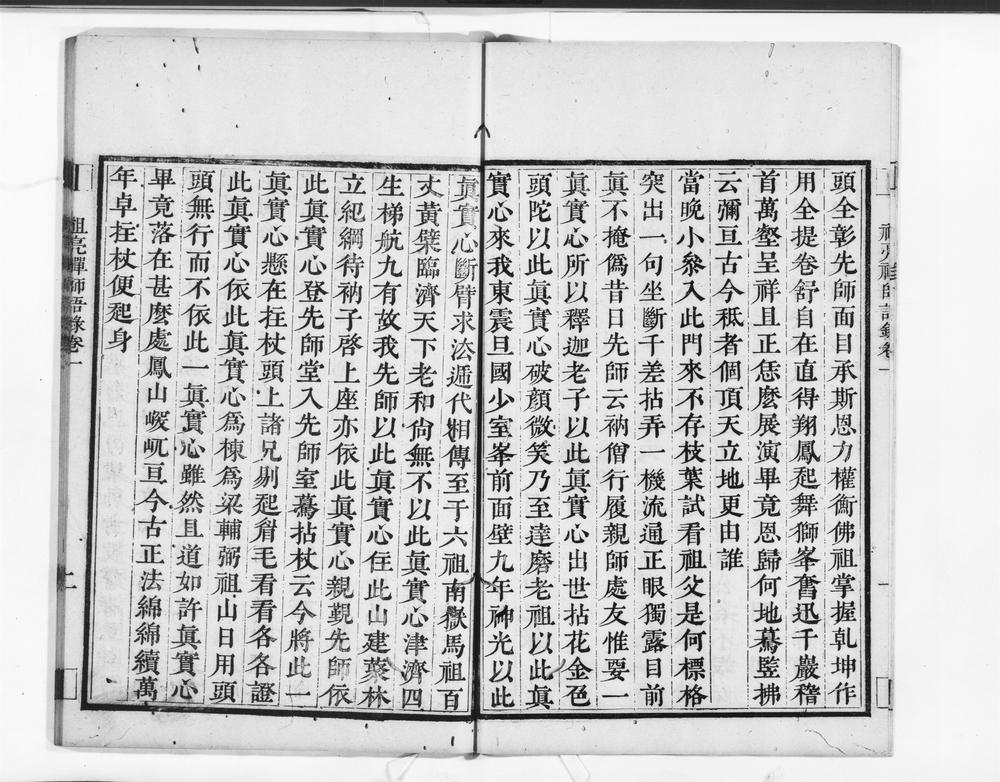 頭全彰先師面目承斯恩力權衡佛祖掌握乹坤作
用全提卷舒自在直得翔鳳起舞獅峯奮迅千巖稽
首萬壑呈祥且正恁麼展演畢竟恩歸何地驀竪拂
云彌亘古今秪者個頂天立地更由誰
當晚小叅入此門來不存枝葉試看祖父是何標格
突出一句坐斷千差拈弄一機流通正眼獨露目前
眞不掩僞昔日先師云衲僧行履親師處友惟要一
眞實心所以釋迦老子以此眞實心出世拈花金色
頭陀以此眞實心破顏微笑乃至達磨老祖以此眞
實心來我東震旦國少室峯前面壁九年神光以此
眞實心斷臂求法遞代相傳至于六祖南嶽馬祖百
丈黃檗臨濟天下老和尙無不以此眞實心津濟四
生梯航九有故我先師以此眞實心住此山建叢林
立紀綱待衲子啓上座亦依此眞實心親覲先師依
此眞實心登先師堂入先師室驀拈杖云今將此一
眞實心懸在拄杖頭上諸兄剔起眉毛看看各各證
此眞實心依此眞實心爲棟爲梁輔弼祖山日用頭
頭無行而不依此一眞實心雖然且道如許眞實心
畢竟落在甚麼處鳳山巉屼亘今古正法綿綿續萬
年卓拄杖便起身
祖亮禪師語錄卷一
二